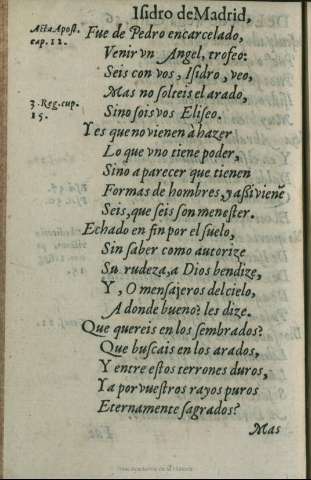 Isidro de Madrid,
Acta Apost.
cap. 12.
Fue de Pedro encarcelado,
Venir vn Angel, trofeo:
Seis con vos, Isidro, veo,
Mas no solteis el arado,
3. Reg. cup.
15.
Sino sois vos Eliseo.
Y es que no vienen à hazer
Lo que vno tiene poder,
Sino a parecer que tienen
Formas de hombres, y assi vienẽ
Seis, que seis son menester.
Echado en fin por el suelo,
Sin saber como autorize
Su rudeza, a Dios bendize,
Y, O mensajeros del cielo,
A donde bueno? les dize.
Que quereis en los sembrados?
Que buscais en los arados,
Y entre estos terrones duros,
Ya por vuestros rayos puros
Eternamente sagrados?
Mas
Real Academia de la Historia